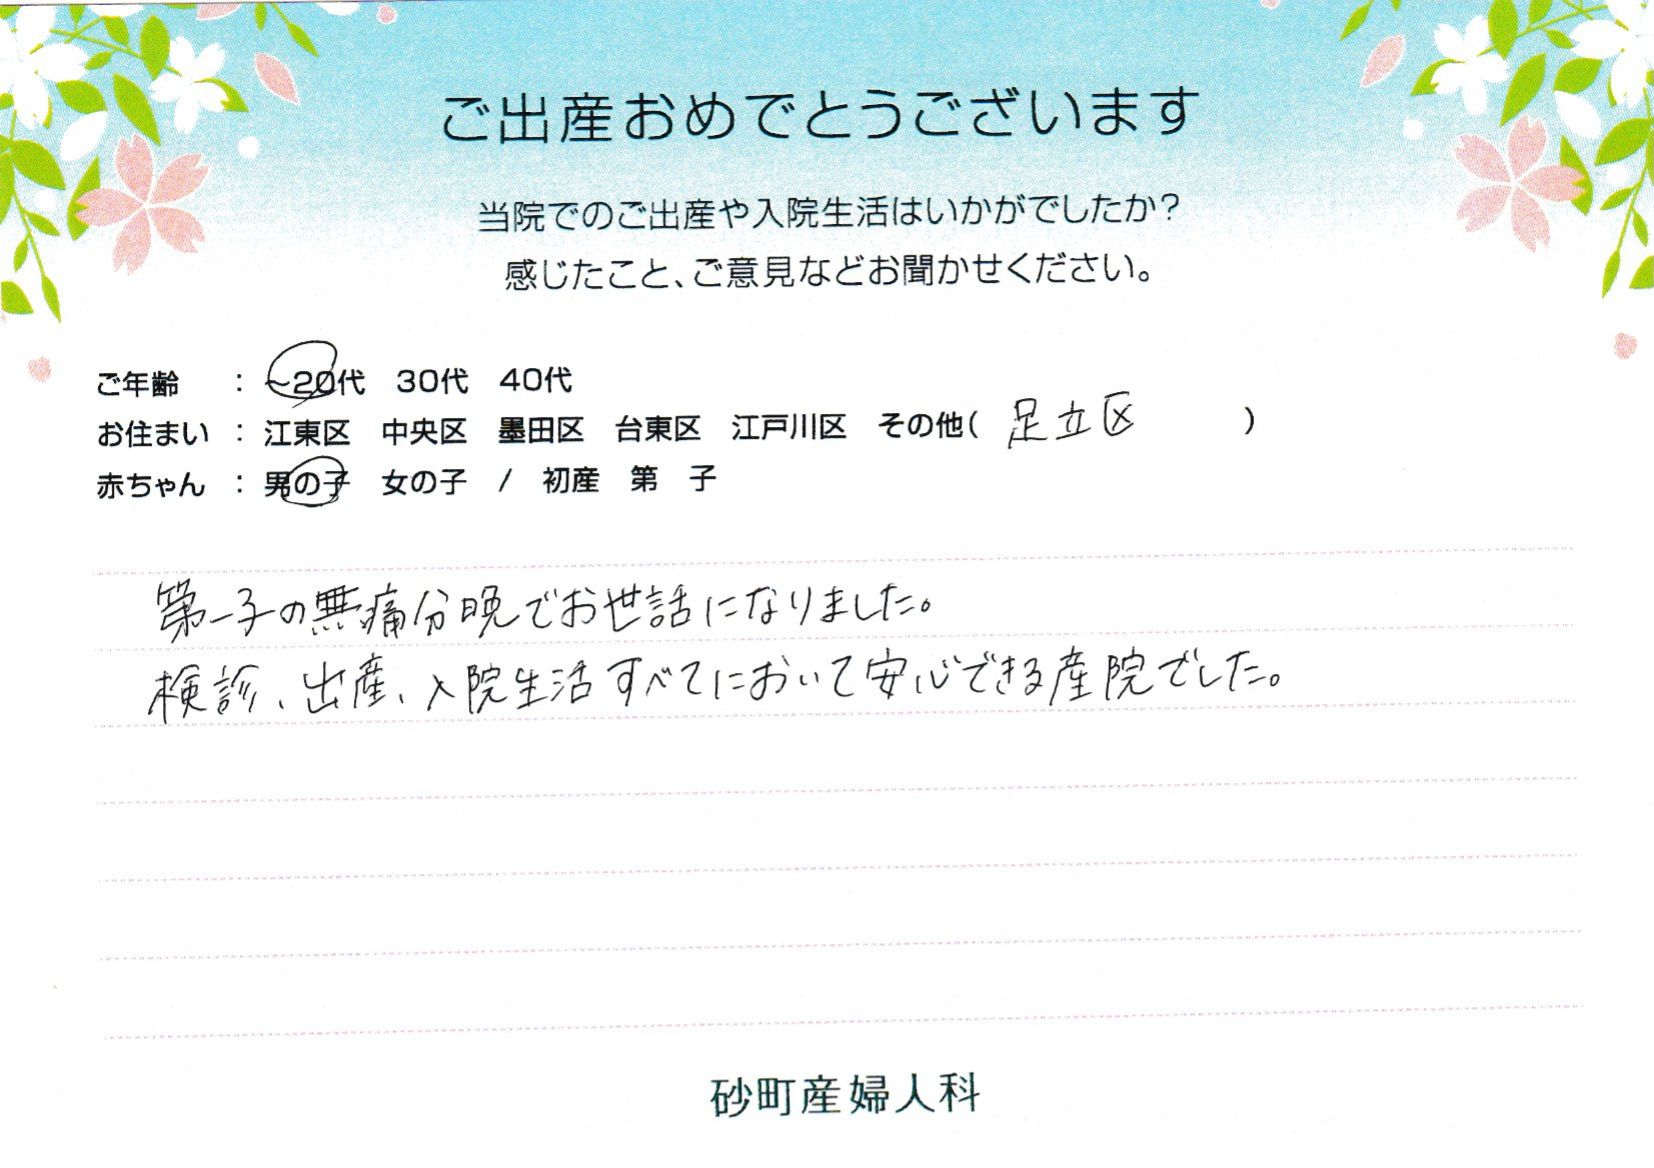 ご出産おめでとうございます
当院でのご出産や入院生活はいかがでしたか?
感じたこと、ご意見などお聞かせください。
ご年齢 : ~20代 30代 40代
お住まい : 江東区 中央区 墨田区 台東区 江戸川区 その他( 足立区 )
赤ちゃん : 男の子 女の子 / 初産 第 子
第一子の無痛分晩でお世話になりました。
検診、出産、入院生活すべてにおいて安心できる産院でした。
砂町産婦人科